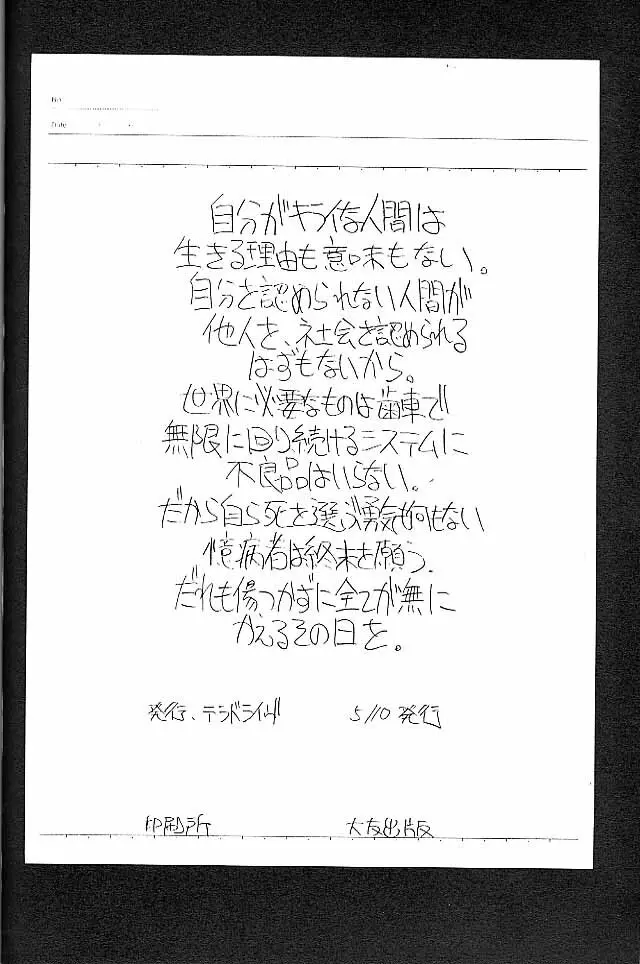 No
Date
自分がキライな人間は
生きる理由も意味もない。
自分を認められない人間が
他人を、社会を認められる
はずもないから。
世界に必要なものは歯車で
無限に回り続けるシステムに
不良品はいらない。
だから自ら死を選ぶ勇気も何もない
憶病者は終末を願う.
だれも傷つかずに全てが無に
かえるその日を。
発行、テラドライヴ 5/10発行
印刷所 大友出版